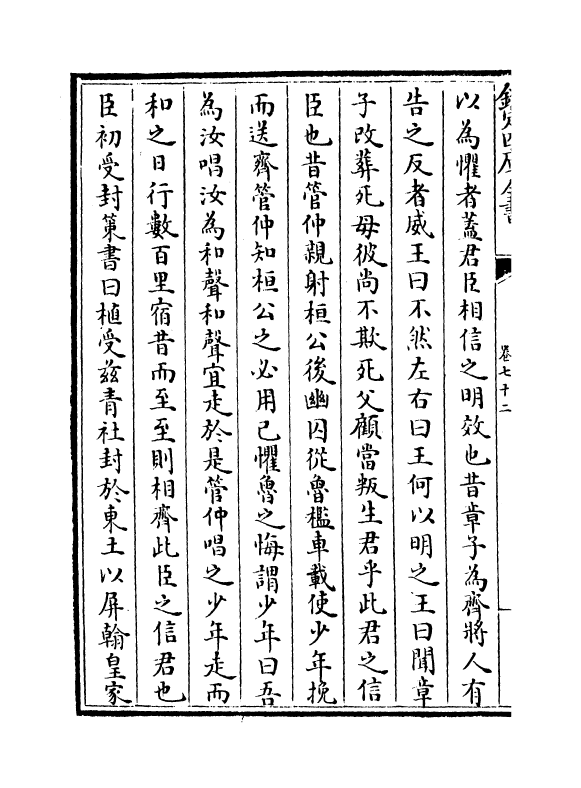 欽定四庫全書
卷七十二
以為懼者蓋君臣相信之明效也昔章子為齊將人有
告之反者威王曰不然左右曰王何以明之王曰聞章
子改葬死母彼尚不欺死父顧當叛生君乎此君之信
臣也昔管仲親射桓公後幽囚從魯檻車載使少年挽
而送齊管仲知桓公之必用己懼魯之悔謂少年曰吾
為汝唱汝為和聲和聲宜走於是管仲唱之少年走而
和之日行數百里宿昔而至至則相齊此臣之信君也
臣初受封策書曰植受茲青社封於東土以屏翰皇家